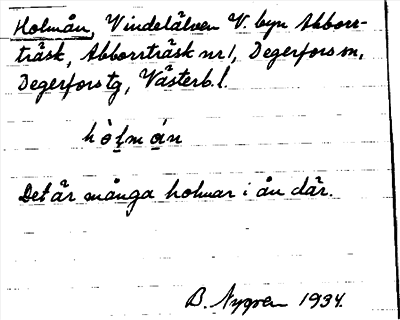 Holmån, Vindelälven V. byn Abborr-
träsk, Abborrträsk nr 1, Degerfors sn,
Degerfors tg, Västerb. l.
hòlmån
Det är många holmar i ån där.
B. Nygren 1934.